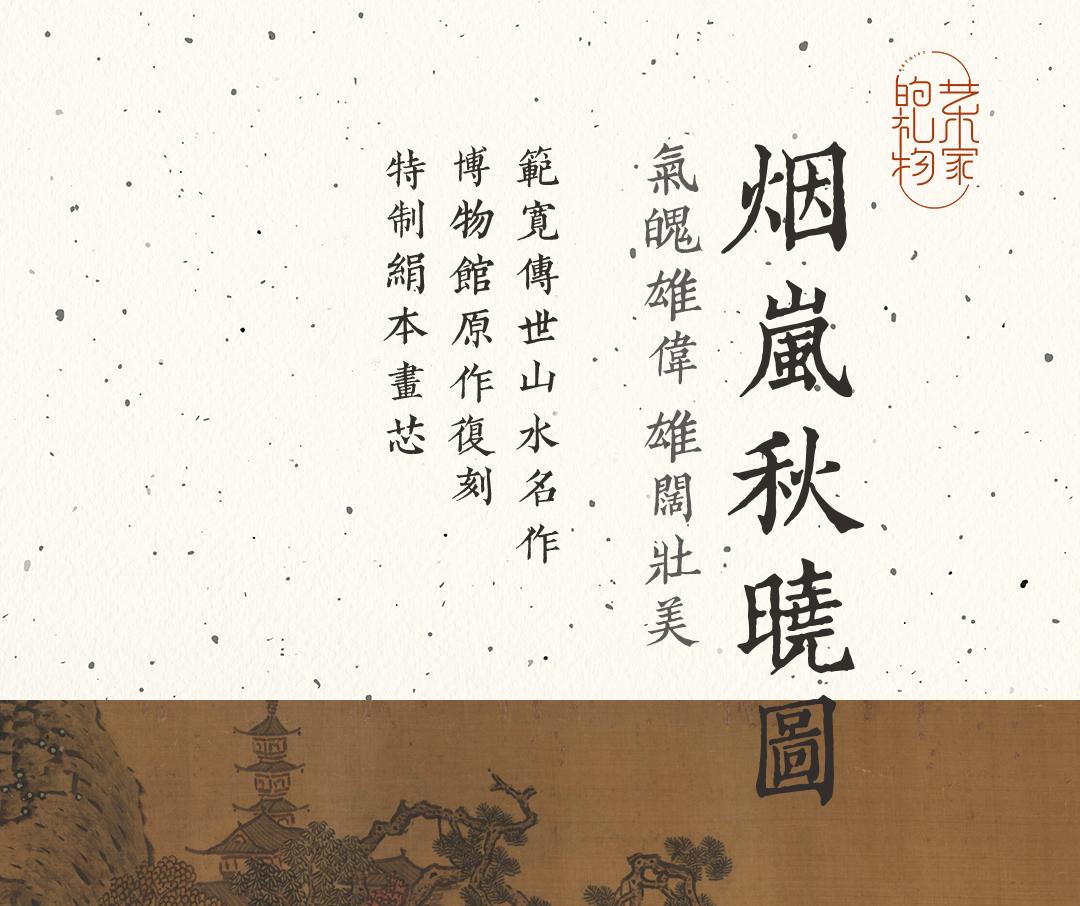 艺术家
的礼物
烟嵐秋曉圖
氣魄雄偉 雄闊壯美
範寬傳世山水名作
博物館原作復刻
特制絹本畫芯